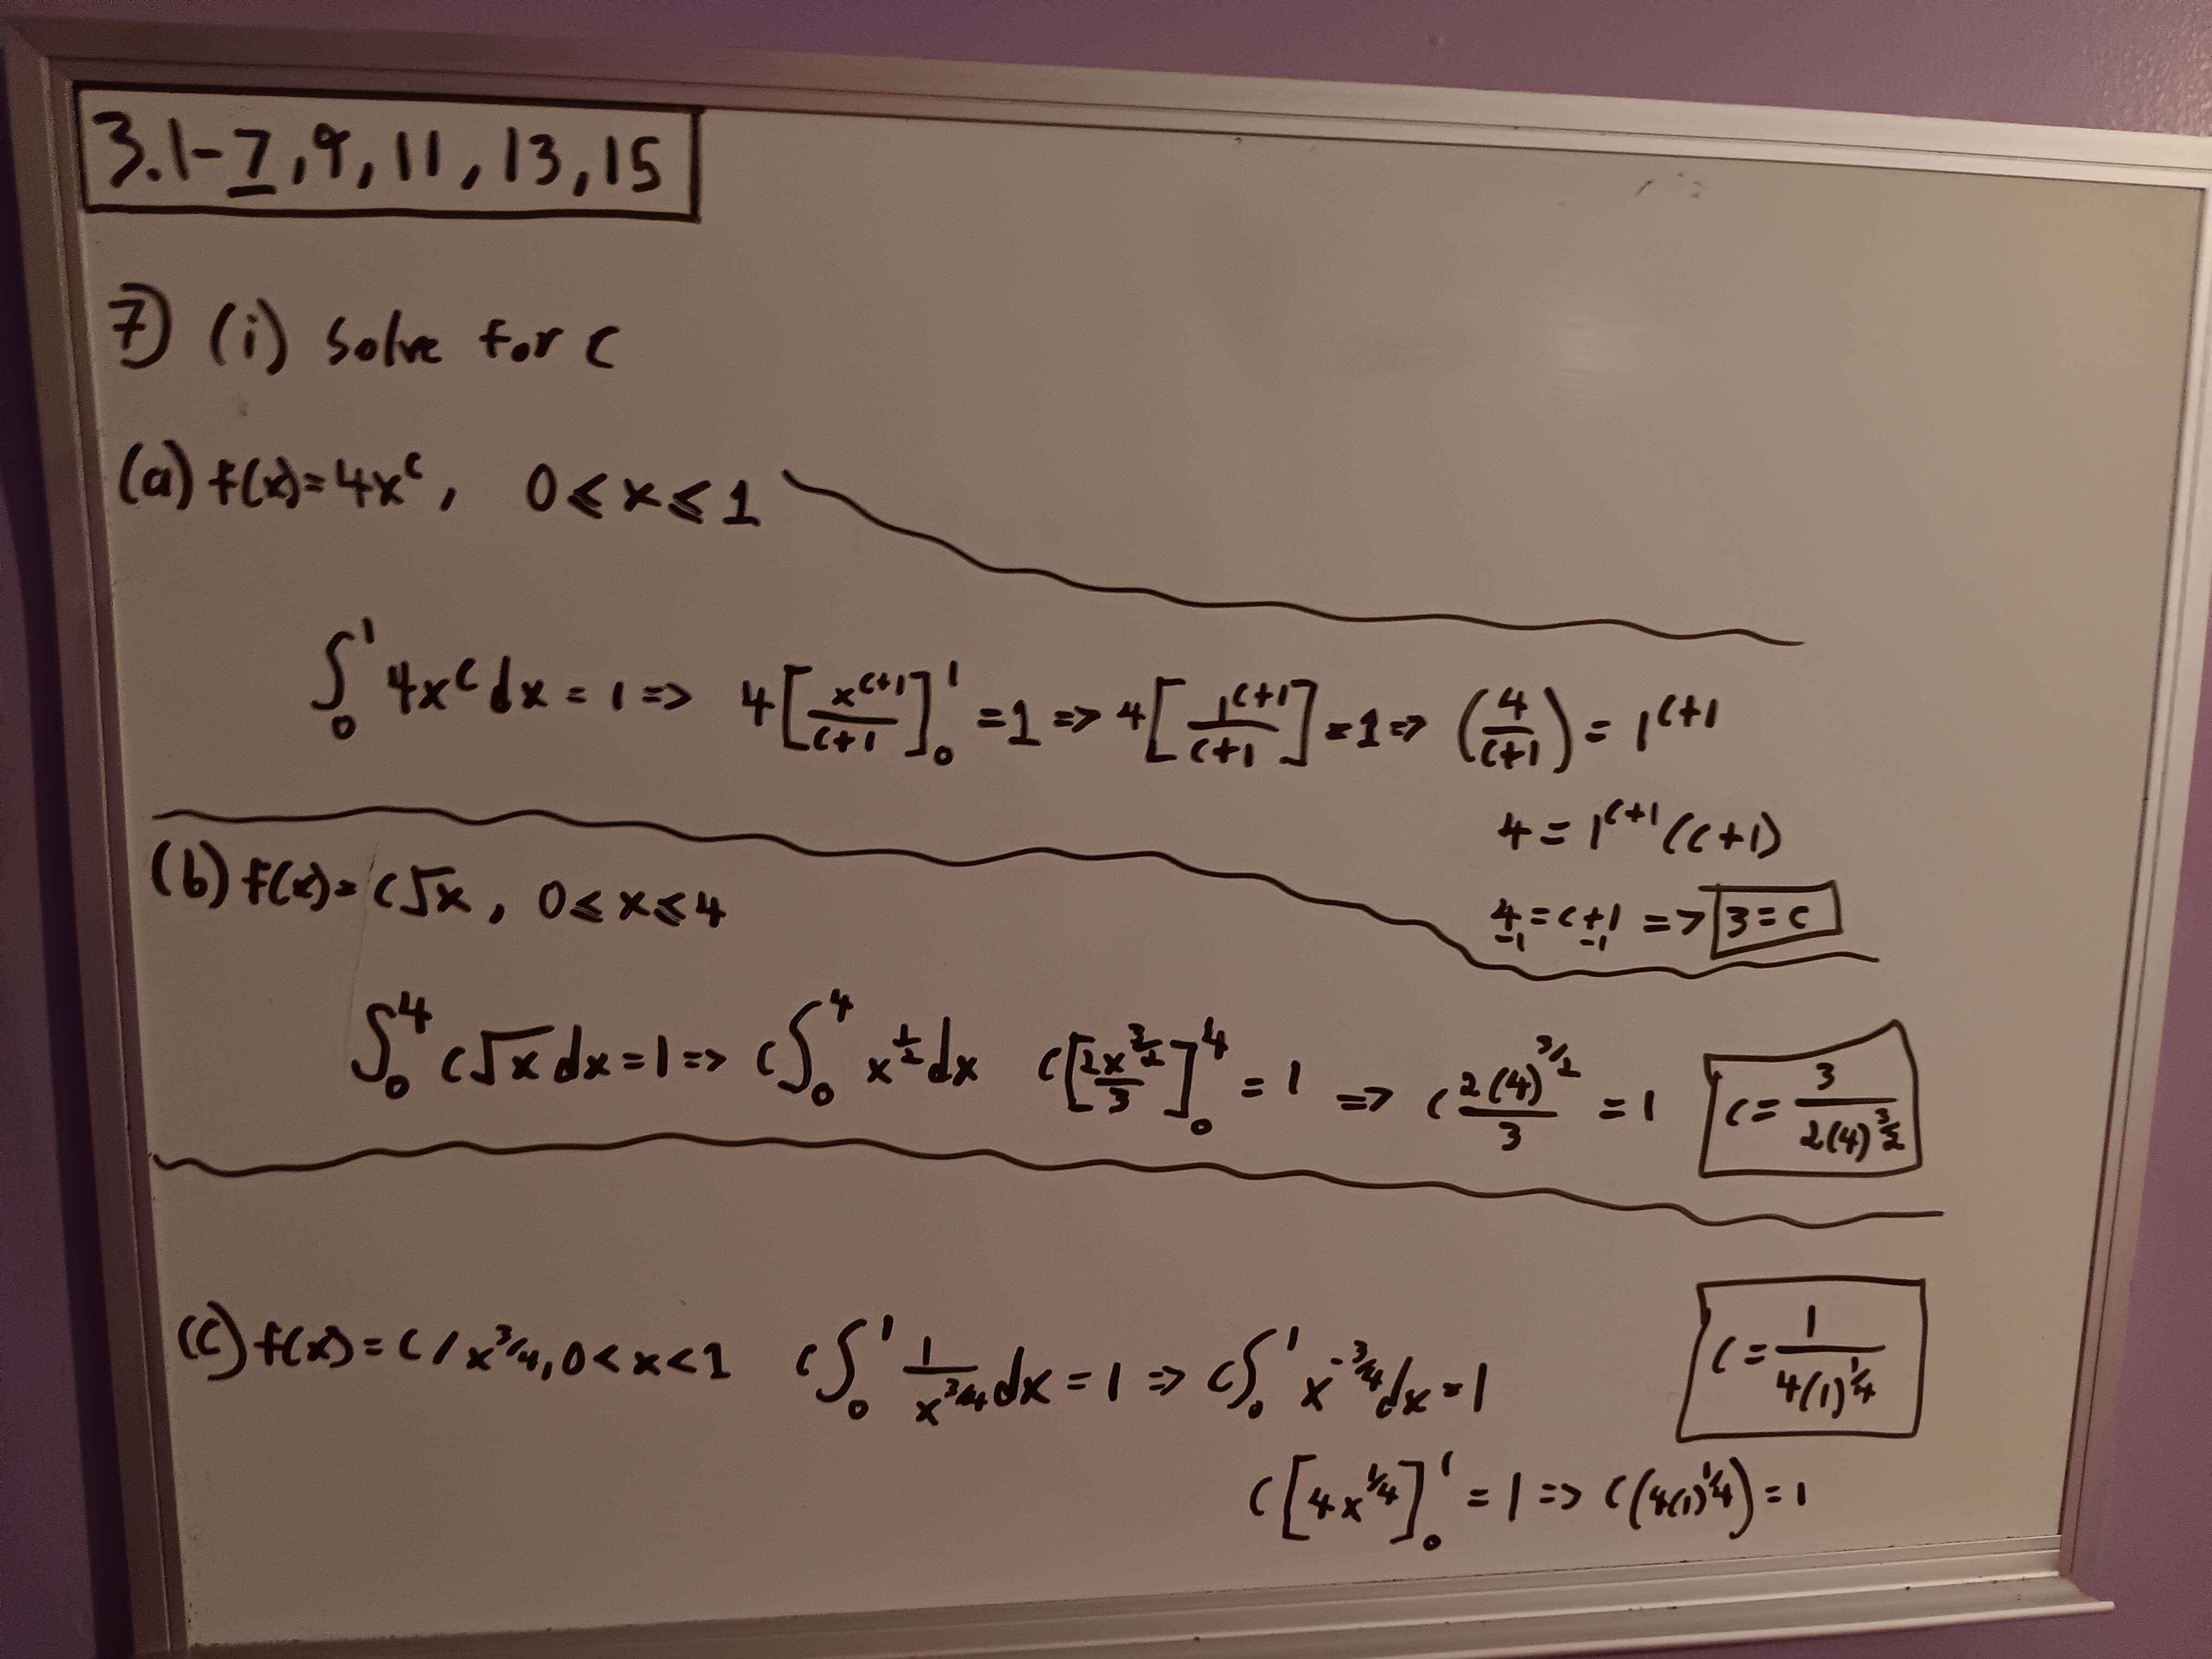 3.1-7, 9, 11, 13, 15
7) (i) Solve for c
(a) f(x)=4x^c, 0≤x≤1
∫_0^1 4x^c dx = 1 => 4[x^(c+1)/(c+1)]_0^1 = 1 => 4[1^(c+1)/(c+1)] = 1 => (4/(c+1)) = 1^(c+1)
4 = 1^(c+1) (c+1)
4 = c+1 => 3 = c
-1 -1
(b) f(x) = c√x, 0≤x≤4
∫_0^4 c√x dx = 1 => c∫_0^4 x^(1/2) dx c[2x^(3/2)/3]_0^4 = 1 => c 2(4)^(3/2)/3 = 1 c = 3/(2(4)^(3/2))
(c) f(x) = c/x^(3/4), 0<x<1 c∫_0^1 1/x^(3/4) dx = 1 => c∫_0^1 x^(-3/4) dx = 1 c = 1/(4(1)^(1/4))
c[4x^(1/4)]_0^1 = 1 => c(4(1)^(1/4)) = 1